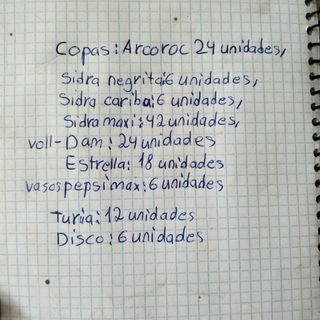 Copas: Arcoroc 24 unidades,
Sidra negrita: 6 unidades,
Sidra cariba: 6 unidades,
Sidra maxi: 42 unidades,
voll-Dam: 24 unidades
Estrella: 18 unidades
vasos pepsi max: 6 unidades
Turia: 12 unidades
Disco: 6 unidades